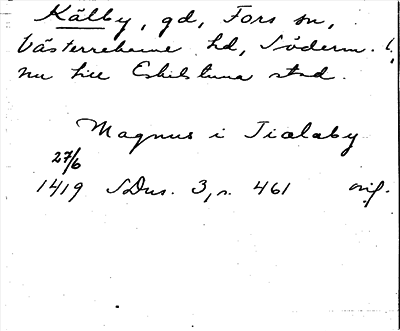 Kälby, gd, Fors sn,
Västerrekarne hd, Söderm. l,
nu till Eskilstuna stad.
Magnus i Tiælaby
27/6
1419 SDns. 3, s. 461 orig.